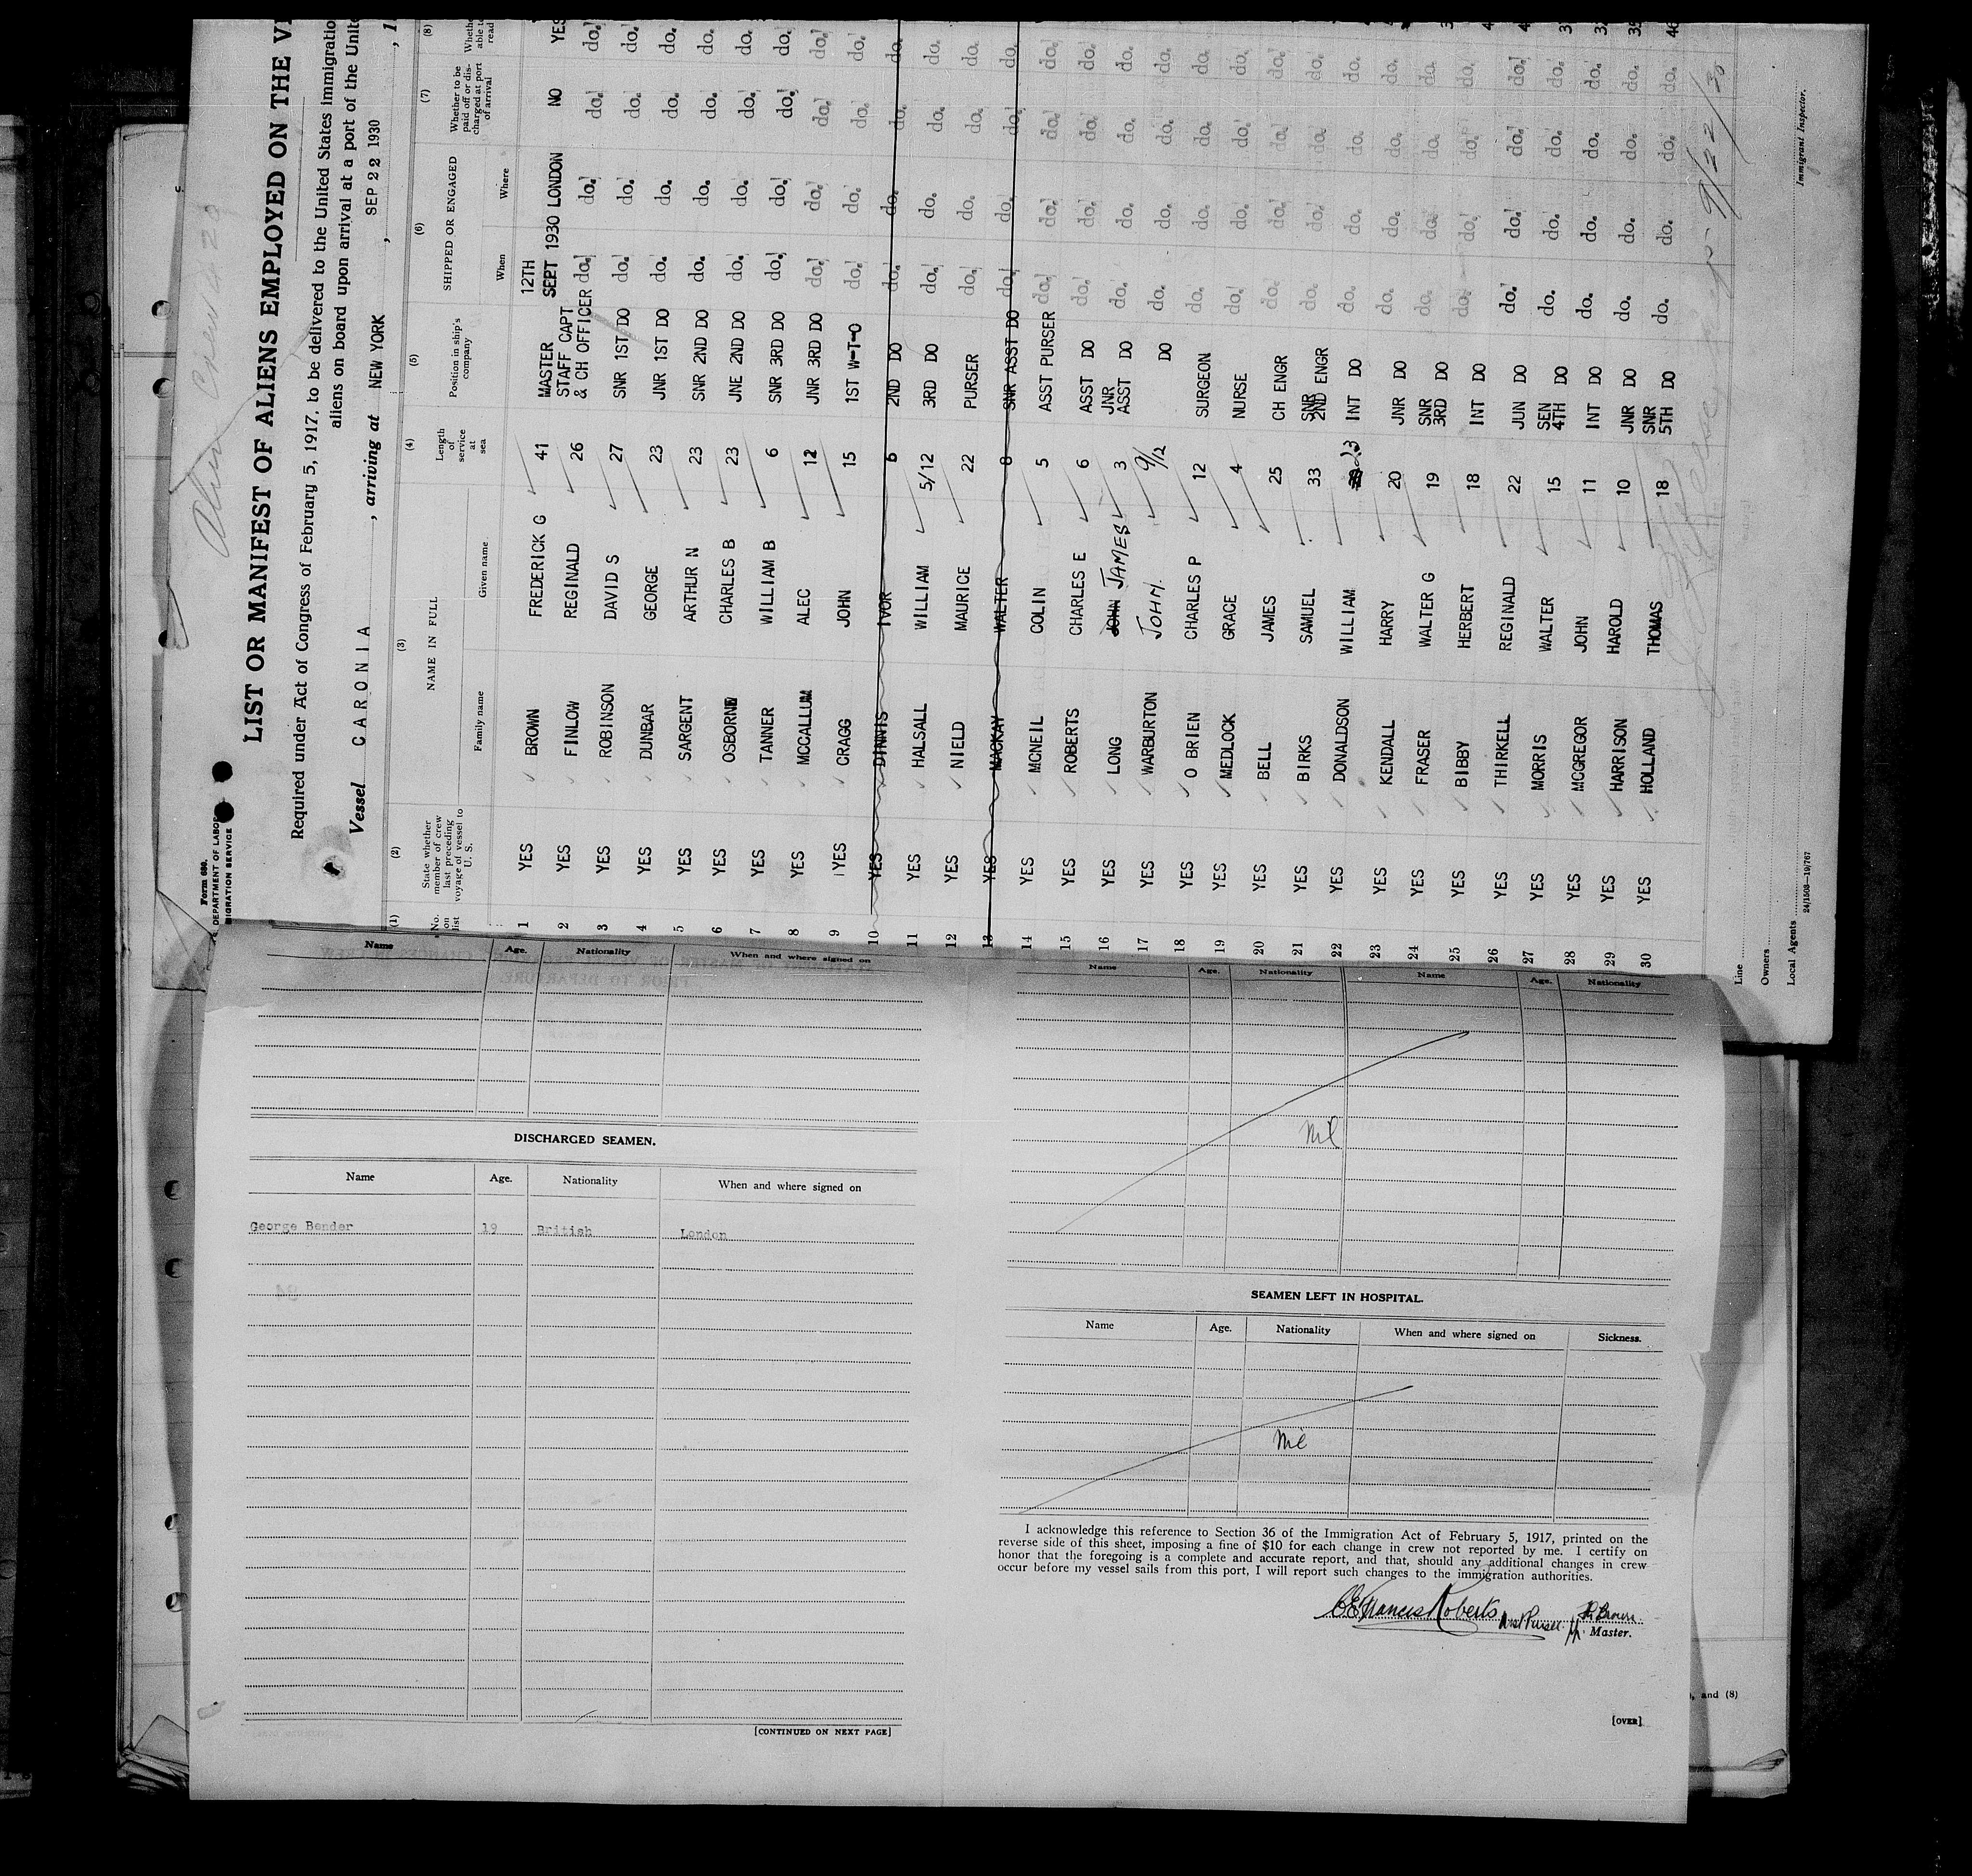 Form 680.
DEPARTMENT OF LABOR
IGRATION SERVICE
Alien Crew
LIST OR MANIFEST OF ALIENS EMPLOYED ON THE
Required under Act of Congress of February 5, 1917, to be delivered to the United States
aliens on board upon arrival at a port of the
Vessel CARONIA, arriving at NEW YORK, SEP 22 1930
(1) (2) (3) (4) (5) (6) (7) (8)
No. on list State whether member of crew last preceding voyage of vessel to U. S. NAME IN FULL Length of service at sea Position in ship's company SHIPPED OR ENGAGED Whether to be paid off or discharged at port of arrival
Family name Given name When Where
1 YES BROWN FREDERICK G 41 MASTER 12TH SEPT 1930 LONDON NO YES
2 YES FINLOW REGINALD 26 STAFF CAPT & CH OFFICER do. do. do. do.
3 YES ROBINSON DAVID S 27 SNR 1ST DO do. do. do. do.
4 YES DUNBAR GEORGE 23 JNR 1ST DO do. do. do. do.
5 YES SARGENT ARTHUR N 23 SNR 2ND DO do. do. do. do.
6 YES OSBORNE CHARLES B 23 JNE 2ND DO do. do. do. do.
7 YES TANNER WILLIAM B 6 SNR 3RD DO do. do. do. do.
8 YES MCCALLUM ALEC 12 JNR 3RD DO do. do. do. do.
9 YES CRAGG JOHN 15 1ST W-T-O do. do. do. do.
10 YES DINNIS IVOR 6 2ND DO do. do. do. do.
11 YES HALSALL WILLIAM 5/12 3RD DO do. do. do. do.
12 YES NIELD MAURICE 22 PURSER do. do. do. do.
13 YES MACKAY WALTER 8 SNR ASST DO do. do. do. do.
14 YES MCNEIL COLIN 5 ASST PURSER do. do. do. do.
15 YES ROBERTS CHARLES E 6 ASST DO do. do. do. do.
16 YES LONG JOHN JAMES 3 JNR ASST DO do. do. do. do.
17 YES WARBURTON JOHN. 9/12 DO do. do. do. do.
18 YES O BRIEN CHARLES P 12 SURGEON do. do. do. do.
19 YES MEDLOCK GRACE 4 NURSE do. do. do. do.
20 YES BELL JAMES 25 CH ENGR do. do. do. do.
21 YES BIRKS SAMUEL 33 SNR 2ND ENGR do. do. do. do.
22 YES DONALDSON WILLIAM 23 INT DO do. do. do. do.
23 YES KENDALL HARRY 20 JNR DO do. do. do. do.
24 YES FRASER WALTER G 19 SNR 3RD DO do. do. do. do.
25 YES BIBBY HERBERT 18 INT DO do. do. do. do.
26 YES THIRKELL REGINALD 22 JUN DO do. do. do. do.
27 YES MORRIS WALTER 15 SEN 4TH DO do. do. do. do.
28 YES MCGREGOR JOHN 11 INT DO do. do. do. do.
29 YES HARRISON HAROLD 10 JNR DO do. do. do. do.
30 YES HOLLAND THOMAS 18 SNR 5TH DO do. do. do. do.
9/22/30
Line
Owners
Local Agents
Immigrant Inspector.
24/1508—19/767
Name Age. Nationality When and where signed on
DISCHARGED SEAMEN.
Name Age. Nationality When and where signed on
George Bender 19 British London
[CONTINUED ON NEXT PAGE]
Name Age. Nationality Name Age. Nationality
Nil
SEAMEN LEFT IN HOSPITAL.
Name Age. Nationality When and where signed on Sickness.
Nil
I acknowledge this reference to Section 36 of the Immigration Act of February 5, 1917, printed on the
reverse side of this sheet, imposing a fine of $10 for each change in crew not reported by me. I certify on
honor that the foregoing is a complete and accurate report, and that, should any additional changes in crew
occur before my vessel sails from this port, I will report such changes to the immigration authorities.
C E Francis Roberts Asst Purser. Brown
Master.
[OVER]
, and (8)